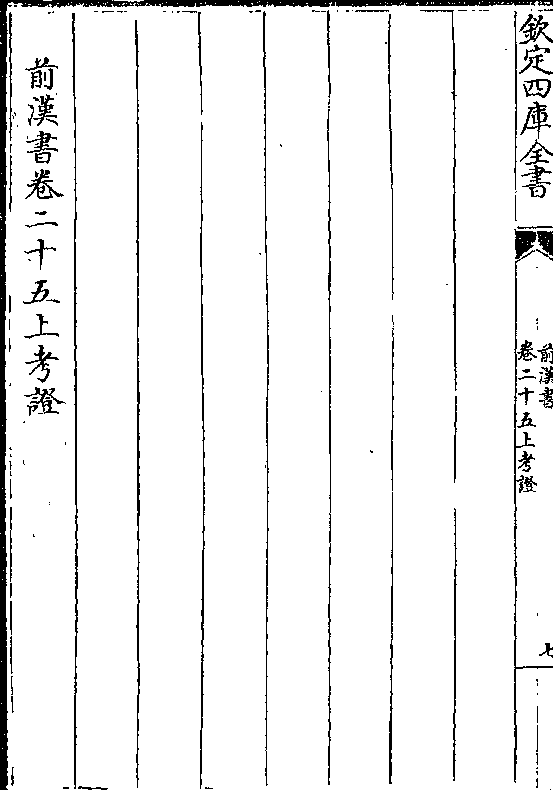 欽定四庫全書
前漢書
卷二十五上考證
七
前漢書卷二十五上考證